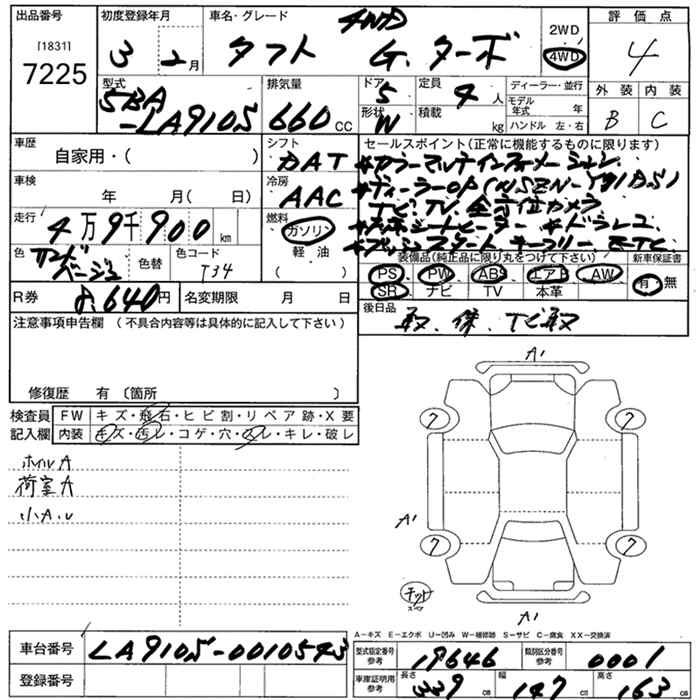 出品番号 初度登録年月 車名・グレード 4WD 評価点
[1831] 7225 3 2月 タフト G.ターボ 2WD 4WD 4
型式 排気量 ドア 5 定員 4人 ディーラー・並行 外装 内装
5BA-LA910S 660cc 形状 W 積載 kg モデル年式 年 B C
ハンドル 左・右
車歴 シフト セールスポイント(正常に機能するものに限ります)
自家用・( ) DAT *カラーマルチインフォメーション
車検 冷房 *ディーラーOPナビ(NSZN-Y71DS)
年 月( 日) AAC ナビ.TV 全方位カメラ
走行 燃料 *シートヒーター *ドラレコ
4万9千900km ガソリン *プッシュスタート ETC
色 色替 色コード 軽油 装備品(純正品に限り丸をつけて下さい) 新車保証書
サンドベージュ T34 ( ) PS PW ABS エアB AW 有・無
R券 8,640円 名変期限 月 日 SR ナビ TV 本革
注意事項申告欄 (不具合内容等は具体的に記入して下さい) 後日品
取.保.ナビ取
修復歴 有 〔箇所 〕
検査員記入欄 FW キズ・飛石・ヒビ割・リペア跡・X要
内装 キズ・汚レ・コゲ・穴・スレ・キレ・破レ
ホイルA
荷室A
小A.U
A1
7 7
A1
7 7
スペア
A1
A-キズ E-エクボ U-凹み W-補修跡 S-サビ C-腐食 XX-交換済
車台番号 LA910S-0010543 型式指定番号参考 19646 類別区分番号参考 0001
登録番号 車庫証明用参考 長さ 339cm 幅 147cm 高さ 163